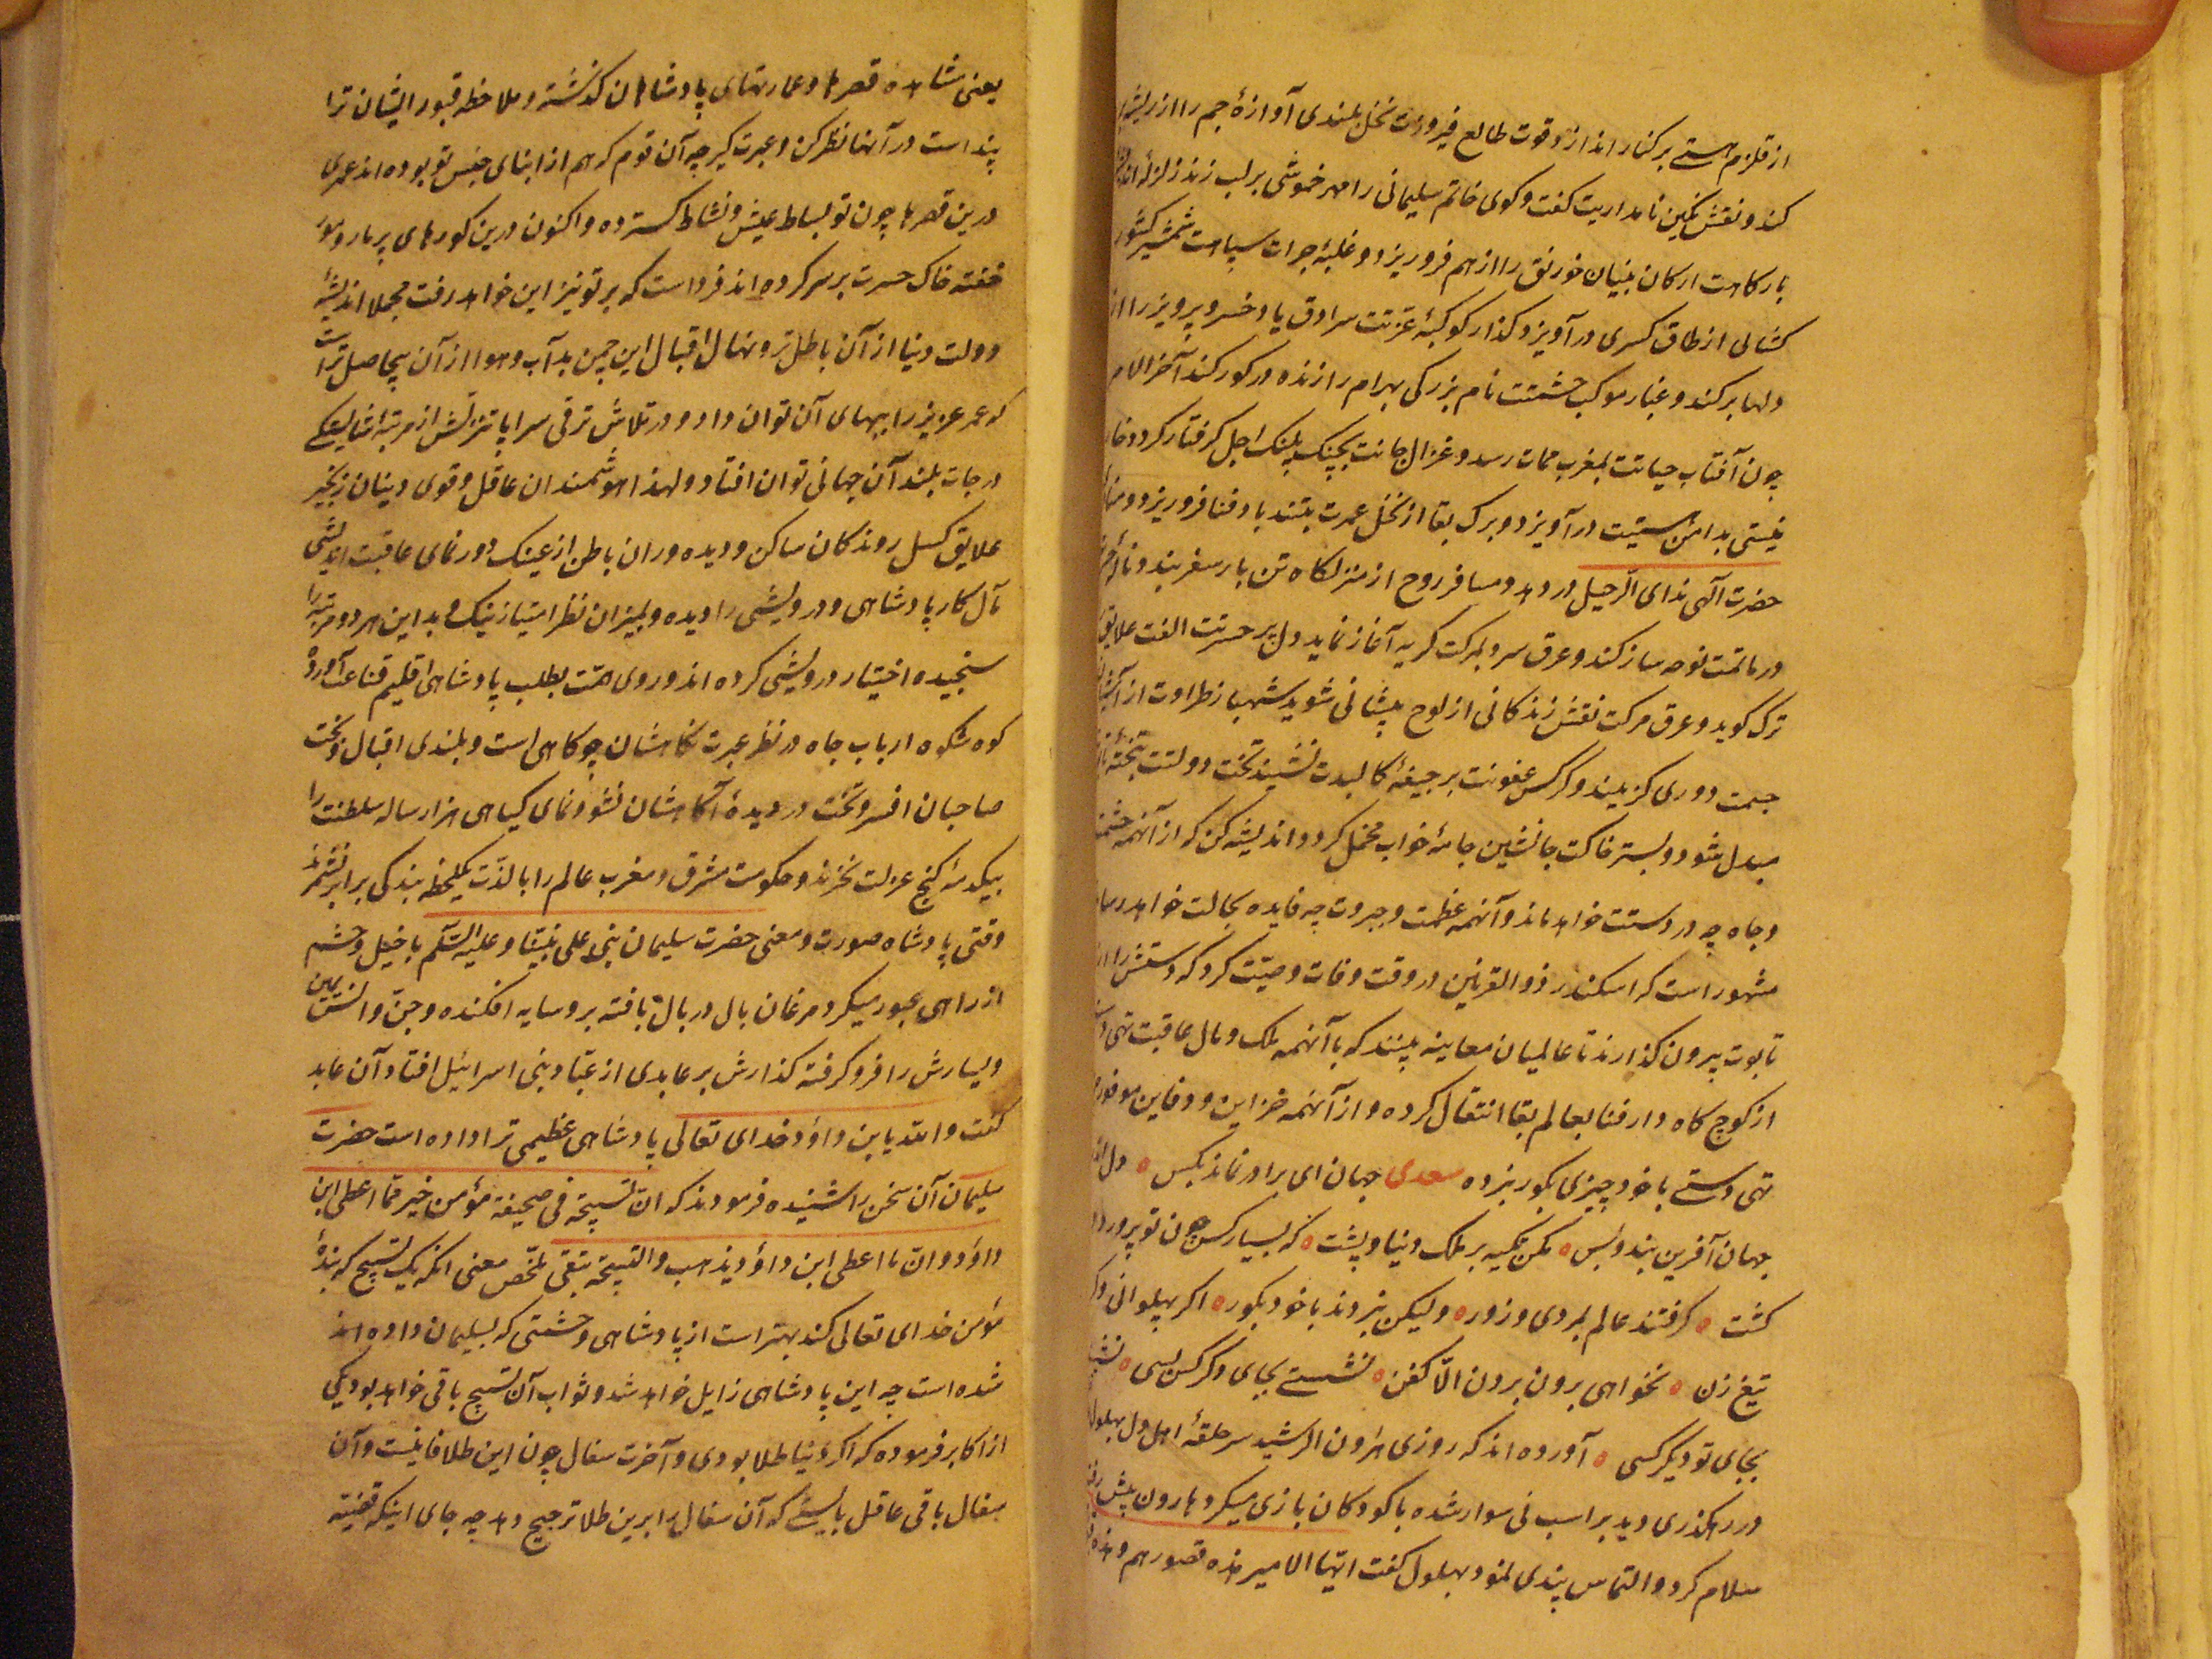 از قلزم هستے بر کنار اندازد وقوت طالع فیروزت نخل بلندی آوازهٔ جم را از
کند و نقش نگین نامداریت گفت وگوی خاتم سلیمانی را مهر خموشی بر لب زند زلزلهٔ
بارگاهت ارکان بنیان خورنق را از هم فرو ریزد و غلبهٔ جرات سپاهت شمشیر کشور
کشائی از طاق کسری در آویزد و کوکبهٔ عزتت سرادق یاد خسرو پرویز را از
دلها بر کند و غبار موکب حشمتت نام بزرکی بهرام را زنده در کور کند آخر الامر
چون آفتاب حیاتت بمغرب ممات رسد و غزال جانت بچنک پلنک اجل کرفتار کردد خار
نیستی بدامن هستیت در آویزد و برک بقا از نخل عمرت بتند باد فنا فرو ریزد و منادی
حضرت آلهی ندای الرحیل در دهد و مسافر روح از منزلکاه تن بار سفر بندد و
در ماتمت نوحه ساز کند و عرق سرد بمرکت کریه آغاز نماید دل پر حسرتت الفت علایق
ترک کوید و عرق مرکت نقش زندکانی از لوح پیشانی شوید شهباز طراوت از
جسمت دوری کزیند و کرکس عفونت بر جیفهٔ کالبدت نشیند تخت دولتت بتختهٔ
مبدل شود و بستر خاکت جانشین جامهٔ خواب مخمل کردد اندیشه کن که از آنهمه حشمت
و جاه چه در دستت خواهد ماند و آنهمه عظمت و جبروت چه فایده بحالت خواهد رساند
مشهور است که اسکندر ذوالقرنین در وقت وفات وصیت کرد که دستش را از
تابوت بیرون کذارند تا عالمیان معاینه بینند که با آنهمه ملک و مال عاقبت تهی دست
از کوچ کاه دار فنا بعالم بقا انتقال کرده و از آنهمه خزاین و دفاین موفور
تهی دستے با خود چیزی بکور نبرده سعدی جهان ای برادر نماند بکس ٥ دل اندر
جهان آفرین بند و بس ٥ مکن تکیه بر ملک دنیا و پشت ٥ که بسیار کس چون تو پرورد و
کشت ٥ کرفتند عالم بمردی و زور ٥ ولیکن نبردند با خود بکور ٥ اکر پهلوانی وکر
تیغ زن ٥ نخواهی برون بردن الّا کفن ٥ نشستے بجای وکر کس بسی ٥
بجای تو دیکر کسی ٥ آورده اند که روزی هارون الرشید سر حلقهٔ اهل دل بهلول
در رهکذری دید بر اسب نی سوار شده با کودکان بازی میکرد هارون پیش
سلام کرد و التماس پندی نمود بهلول کفت ایها الامیر هذه قصورهم و هذه
یعنی مشاهده قصرها و عمارتهای پادشاهان کذشته و ملاحظه قبور ایشان ترا
پند است در آنها نظر کن و عبرت کیر چه آن قوم که هم از ابنای جنس تو بوده اند عمری
درین قصرها چون تو بساط عیش و نشاط کسترده و اکنون درین کورهای پر مار و مور
خفته خاک حسرت بر سر کرده اند فرداست که بر تو نیز این خواهد رفت مجملا اندیشهٔ
دولت دنیا از آن باطل تر و نهال اقبال این چمن بد آب و هوا از آن بیحاصل تر است
که عمر عزیز را ببهای آن توان داد و در تلاش ترقی سراپا تنزلش از مرتبهٔ
درجات بلند آن جهانی توان افتاد و لهذا هوشمندان عاقل و قوی دینان زنجیر
علایق کسل روندکان ساکن و دیده وران باطن از عینک دور نمای عاقبت اندیشی
مآل کار پادشاهی و درویشی را دیده و بمیزان نظر امتیاز نیک و بد این هر دو مرتبه را
سنجیده اختیار درویشی کرده اند و روی همت بطلب پادشاهی اقلیم قناعت آورده
کوه شکوه ارباب جاه در نظر عبرت نکاهشان چو کاهی است و بلندی اقبال و بخت
صاحبان افسر و تخت در دیدهٔ آکاهشان نشو و نمای کیاهی هزار ساله سلطنت را
بیکدمهٔ کنج عزلت نخرند و حکومت مشرق و مغرب عالم را با لذّت یکلحظه بندکی برابر نشمرند
وقتی پادشاه صورت و معنی حضرت سلیمان نبی علی نبیّنا و علیه السّلم با خیل و حشم
از راهی عبور میکرد مرغان بال در بال بافته برو سایه افکنده و جنّ و انس یمین
و یسارش را فرو کرفته کذارش بر عابدی از عبّاد بنی اسرائیل افتاد آن عابد
کفت والله یا بن داؤد خدای تعالی پادشاهی عظیمی ترا داده است حضرت
سلیمان آن سخن را شنیده فرمودند که انّ تسبیحة فی صحیفة مؤمن خیر ممّا اعطی ابن
داؤد و انّ ما اعطی ابن داؤد یذهب و التسبیحة تبقی ملخّص معنی انکه یک تسبیح که بندهٔ
مؤمن خدای تعالی کند بهتر است از پادشاهی و حشمتی که بسلیمان داده اند
شده است چه این پادشاهی زایل خواهد شد و ثواب آن تسبیح باقی خواهد بود یکی
از اکابر فرموده که اکر دنیا طلا بودی و آخرت سفال چون این طلا فانیست و آن
سفال باقی عاقل بایستے که آن سفال را برین طلا ترجیح دهد چه جای اینکه قضیّه